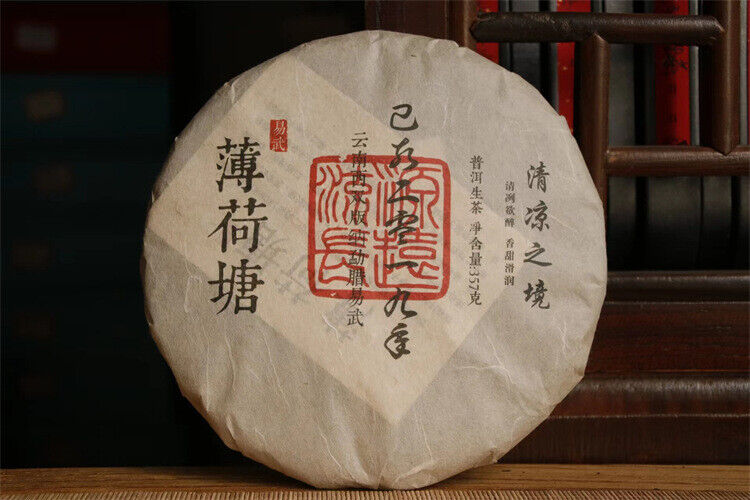 清凉之境
清冽欲醉 香甜滑润
普洱生茶 净含量:357克
己亥二零一九年
源远流长
云南西双版纳勐腊易武
易武
薄荷塘